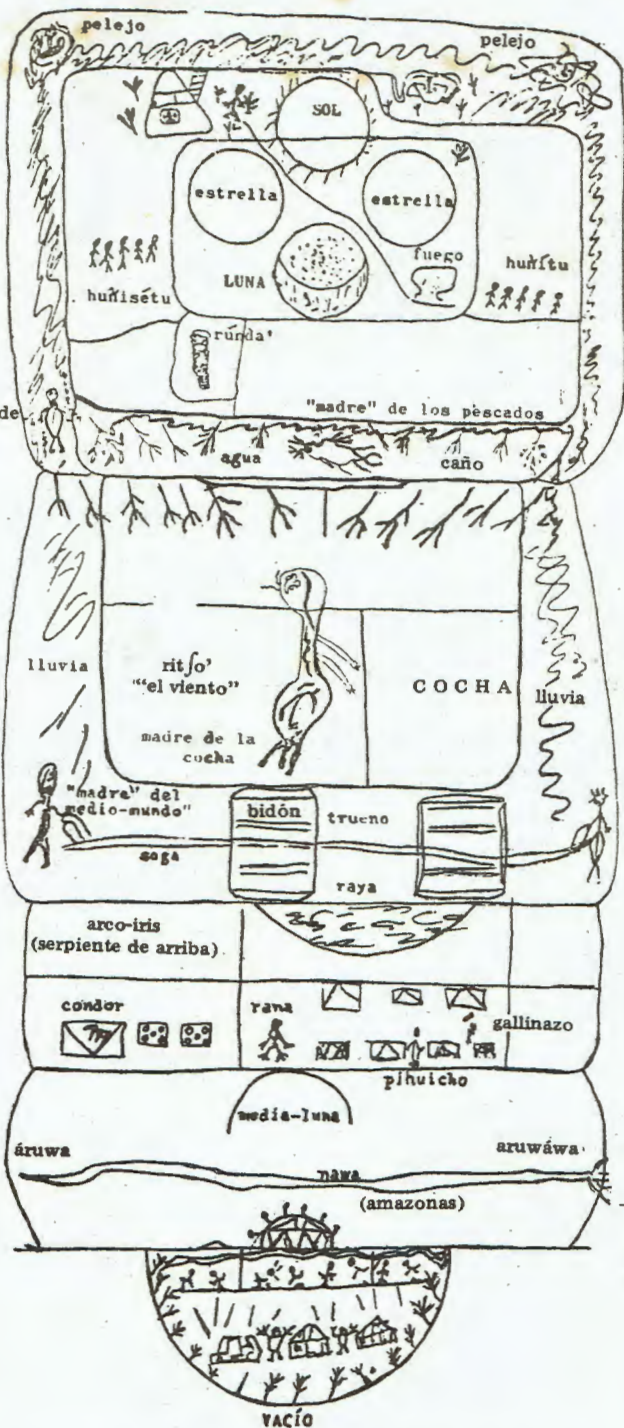 pelejo
pelejo
SOL
estrella
estrella
LUNA
fuego
huñisétu
huñítu
rúnda'
de
"madre" de los pescados
agua
caño
lluvia
ritʃo'
"el viento"
COCHA
lluvia
madre de la
cocha
"madre" del
medio-mundo"
bidón
trueno
soga
raya
arco-iris
(serpiente de arriba)
condor
rana
gallinazo
pihuicho
media-luna
áruwa
aruwáwa
nawa
(amazonas)
VACÍO